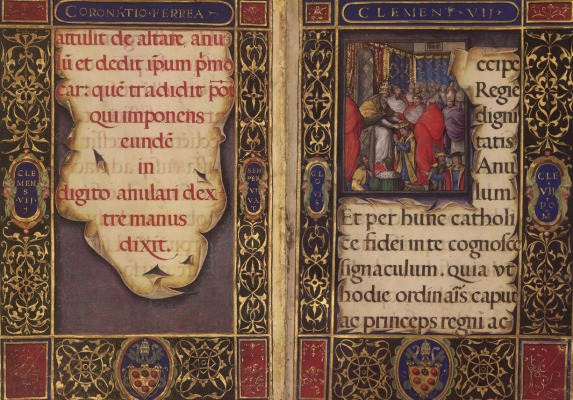 CORONATIO·FERREA
attulit de altare, anu
lū et dedit ipum p̄mo
car: quē tradidit pōt
qui imponens
eundē
in
digito anulari dex
tre manus
dixit.
CLE
MENS
VII
SEM
PER
VIVAT
CLEMENT·VII
ccipe
Regie
digni
tatis
Anu
lum
Et per hunc catholi
ce fidei in te cognosce
signaculum. quia vt
hodie ordinaīs caput
ac princeps regni ac
CLE
VII
PON